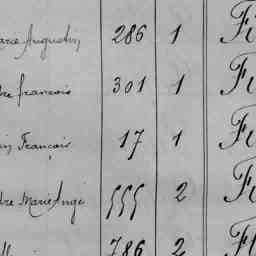 Augustin 286 1 Fi
françois 301 1 Fi
François 17 1 Fi
dre Marie Ange 555 2 Fi
786 2 Fi